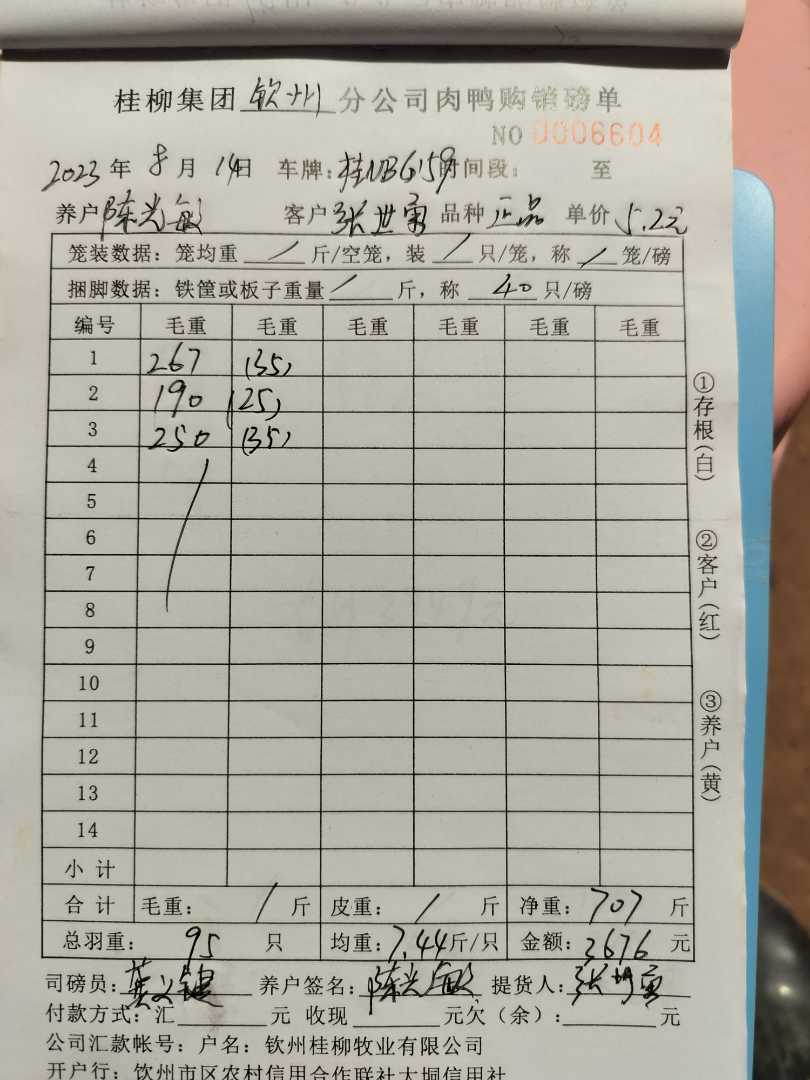 桂柳集团钦州分公司肉鸭购销磅单
NO 0006604
2023年8月14日 车牌:桂NBG159时间段: 至
养户陈光敏 客户张世勇 品种正品 单价5.2元
笼装数据:笼均重/斤/空笼,装/只/笼,称/笼/磅
捆脚数据:铁筐或板子重量/斤,称40只/磅
编号 毛重 毛重 毛重 毛重 毛重 毛重
1 267 (35)
2 190 (25)
3 250 (35)
4
5
6
7
8
9
10
11
12
13
14
小计
合计 毛重:/斤 皮重:/斤 净重:707斤
总羽重:95只 均重:7.44斤/只 金额:3676元
司磅员: 养户签名:陈光敏 提货人:张世勇
付款方式:汇 元 收现 元欠(余): 元
公司汇款帐号:户名:钦州桂柳牧业有限公司
开户行:钦州市区农村信用合作联社大垌信用社
①存根(白)
②客户(红)
③养户(黄)